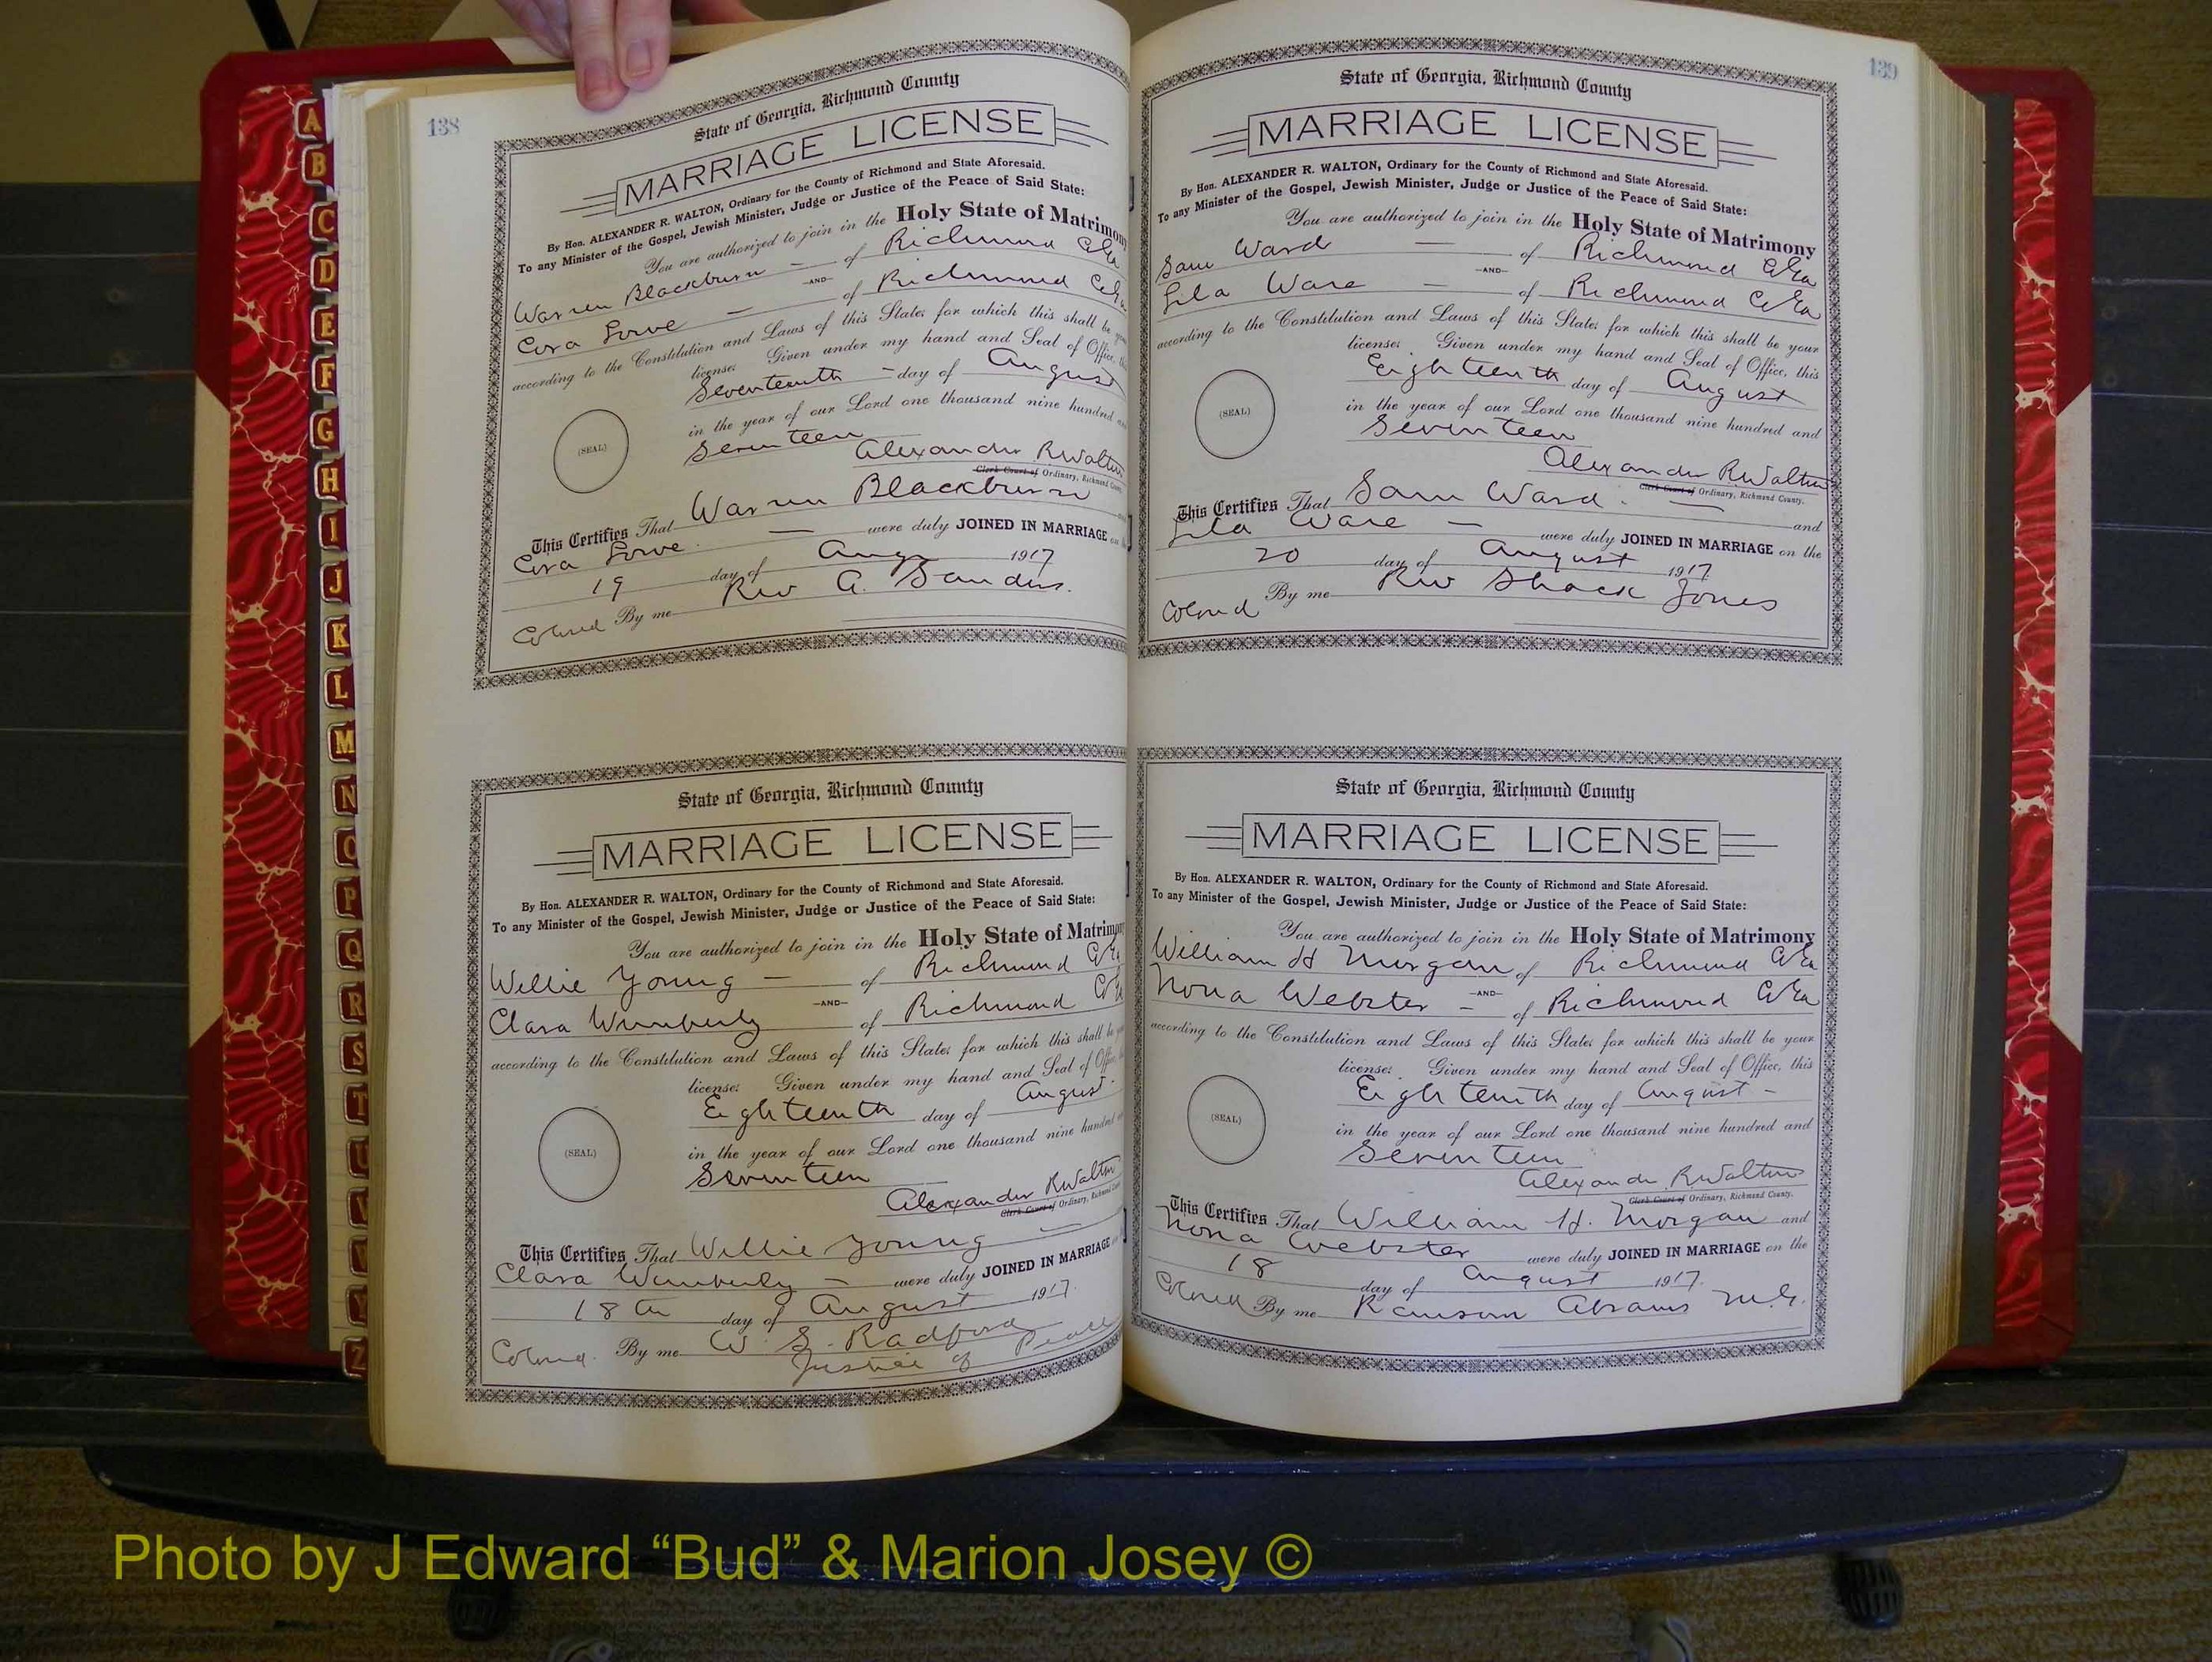 138
State of Georgia, Richmond County
MARRIAGE LICENSE
By Hon. ALEXANDER R. WALTON, Ordinary for the County of Richmond and State Aforesaid.
To any Minister of the Gospel, Jewish Minister, Judge or Justice of the Peace of Said State:
You are authorized to join in the Holy State of Matrimony
Warren Blackburn — of Richmond Co Ga
—AND—
Cora — of Richmond Co Ga
according to the Constitution and Laws of this State; for which this shall be your
license; Given under my hand and Seal of Office, this
Seventeenth - day of August
(SEAL)
in the year of our Lord one thousand nine hundred and
Seventeen
Alexander R Walton
Clerk Court of Ordinary, Richmond County
This Certifies That Warren Blackburn
Cora — were duly JOINED IN MARRIAGE on the
19 day of Aug 1917
Colored By me Rev A. Sanders.
State of Georgia, Richmond County
MARRIAGE LICENSE
By Hon. ALEXANDER R. WALTON, Ordinary for the County of Richmond and State Aforesaid.
To any Minister of the Gospel, Jewish Minister, Judge or Justice of the Peace of Said State:
You are authorized to join in the Holy State of Matrimony
Willie Young — of Richmond Co Ga
—AND—
Clara Wimberly of Richmond Co Ga
according to the Constitution and Laws of this State; for which this shall be your
license; Given under my hand and Seal of Office, this
Eighteenth day of August
(SEAL)
in the year of our Lord one thousand nine hundred and
Seventeen
Alexander R Walton
Clerk Court of Ordinary, Richmond County
This Certifies That Willie Young —
Clara Wimberly — were duly JOINED IN MARRIAGE on
18th day of August 1917.
Colored. By me W. S. Radford
Justice of Peace
139
State of Georgia, Richmond County
MARRIAGE LICENSE
By Hon. ALEXANDER R. WALTON, Ordinary for the County of Richmond and State Aforesaid.
To any Minister of the Gospel, Jewish Minister, Judge or Justice of the Peace of Said State:
You are authorized to join in the Holy State of Matrimony
Sam Ward — of Richmond Co Ga
—AND—
Lila Ware — of Richmond Co Ga
according to the Constitution and Laws of this State; for which this shall be your
license; Given under my hand and Seal of Office, this
Eighteenth day of August
(SEAL)
in the year of our Lord one thousand nine hundred and
Seventeen
Alexander R Walton
Clerk Court of Ordinary, Richmond County.
This Certifies That Sam Ward. — and
Lila Ware — were duly JOINED IN MARRIAGE on the
20 day of August 1917
Colored By me Rev Shack Jones
State of Georgia, Richmond County
MARRIAGE LICENSE
By Hon. ALEXANDER R. WALTON, Ordinary for the County of Richmond and State Aforesaid.
To any Minister of the Gospel, Jewish Minister, Judge or Justice of the Peace of Said State:
You are authorized to join in the Holy State of Matrimony
William H Morgan of Richmond Co Ga
—AND—
Nona Webster - of Richmond Co Ga
according to the Constitution and Laws of this State; for which this shall be your
license; Given under my hand and Seal of Office, this
Eighteenth day of August -
(SEAL)
in the year of our Lord one thousand nine hundred and
Seventeen
Alexander R Walton
Clerk Court of Ordinary, Richmond County.
This Certifies That William H. Morgan and
Nona Webster were duly JOINED IN MARRIAGE on the
18 day of August 1917.
Colored By me Ranson Abrams M.G.
A
B
C
D
E
F
G
H
I
J
K
L
M
N
O
P
Q
R
S
T
U
V
W
Y
Z
Photo by J Edward “Bud” & Marion Josey ©